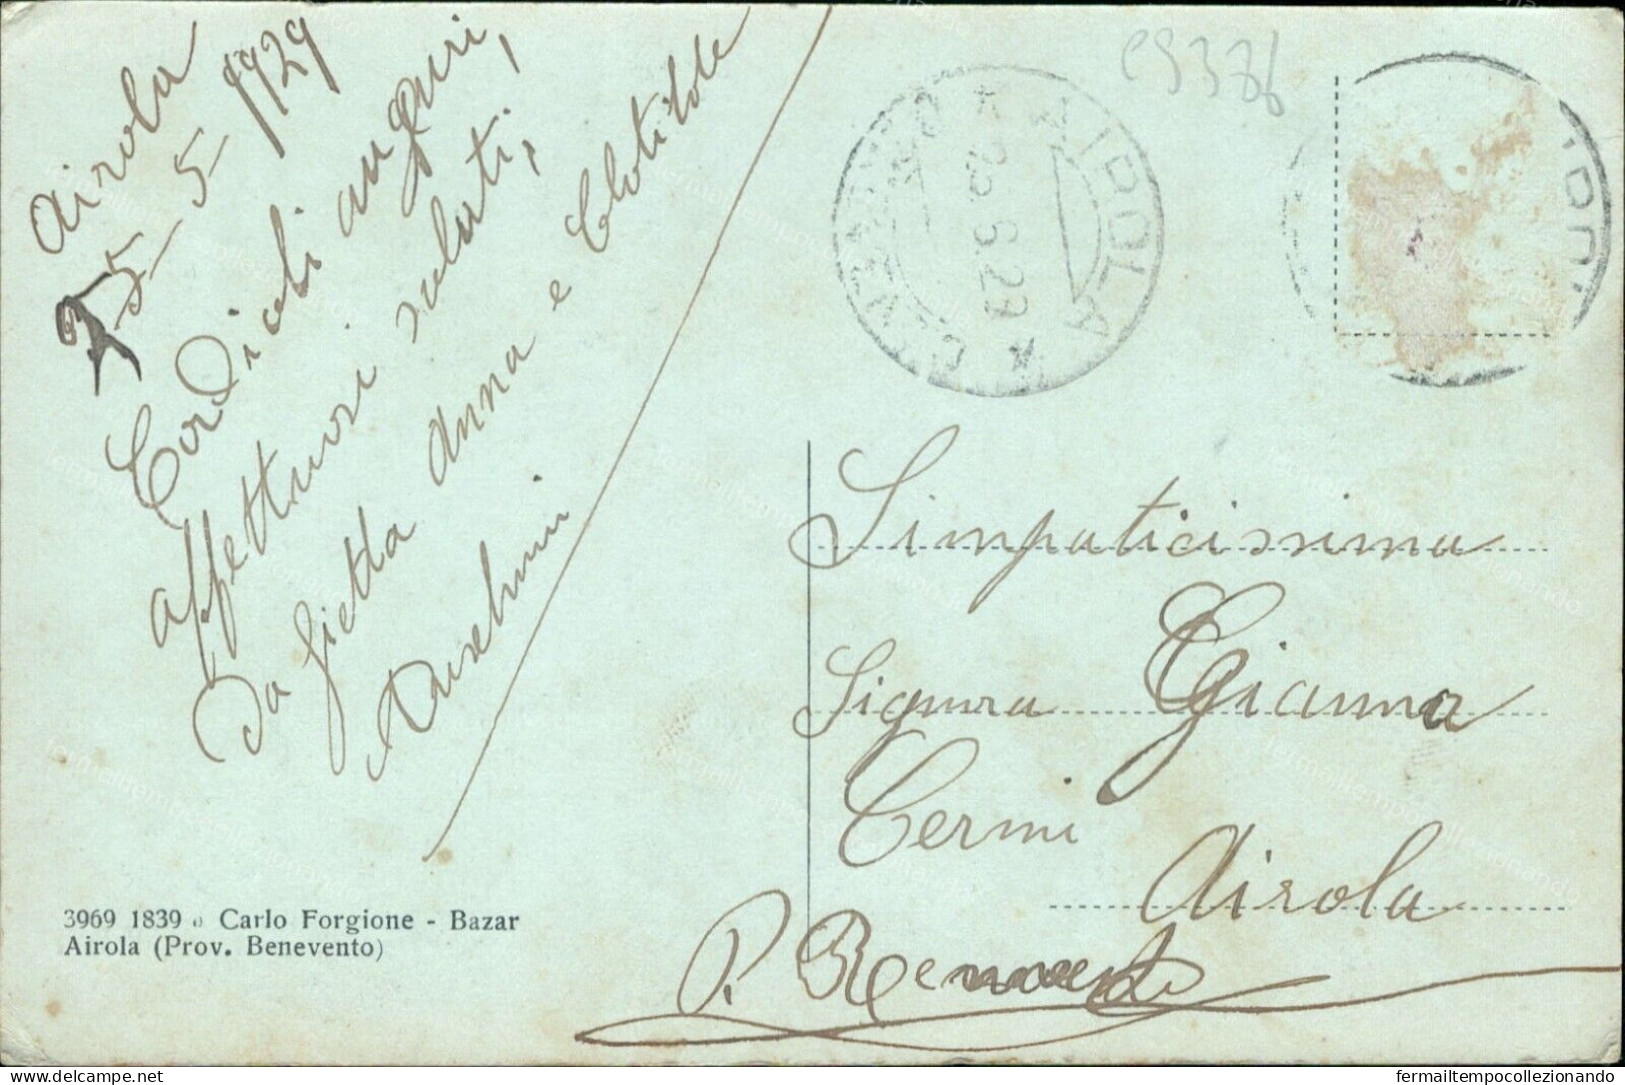 Airola
25-5-1929
Cordiali auguri,
affettuosi saluti,
da Gietta Anna e Clotilde
c9386
AIROLA
* BENEVENTO *
25.5.29
Simpaticissima
Signora Gianna
Cermi
Airola
P. Benevento
3969 1839 a Carlo Forgione - Bazar
Airola (Prov. Benevento)
delcampe.net
fermailtempocollezionando